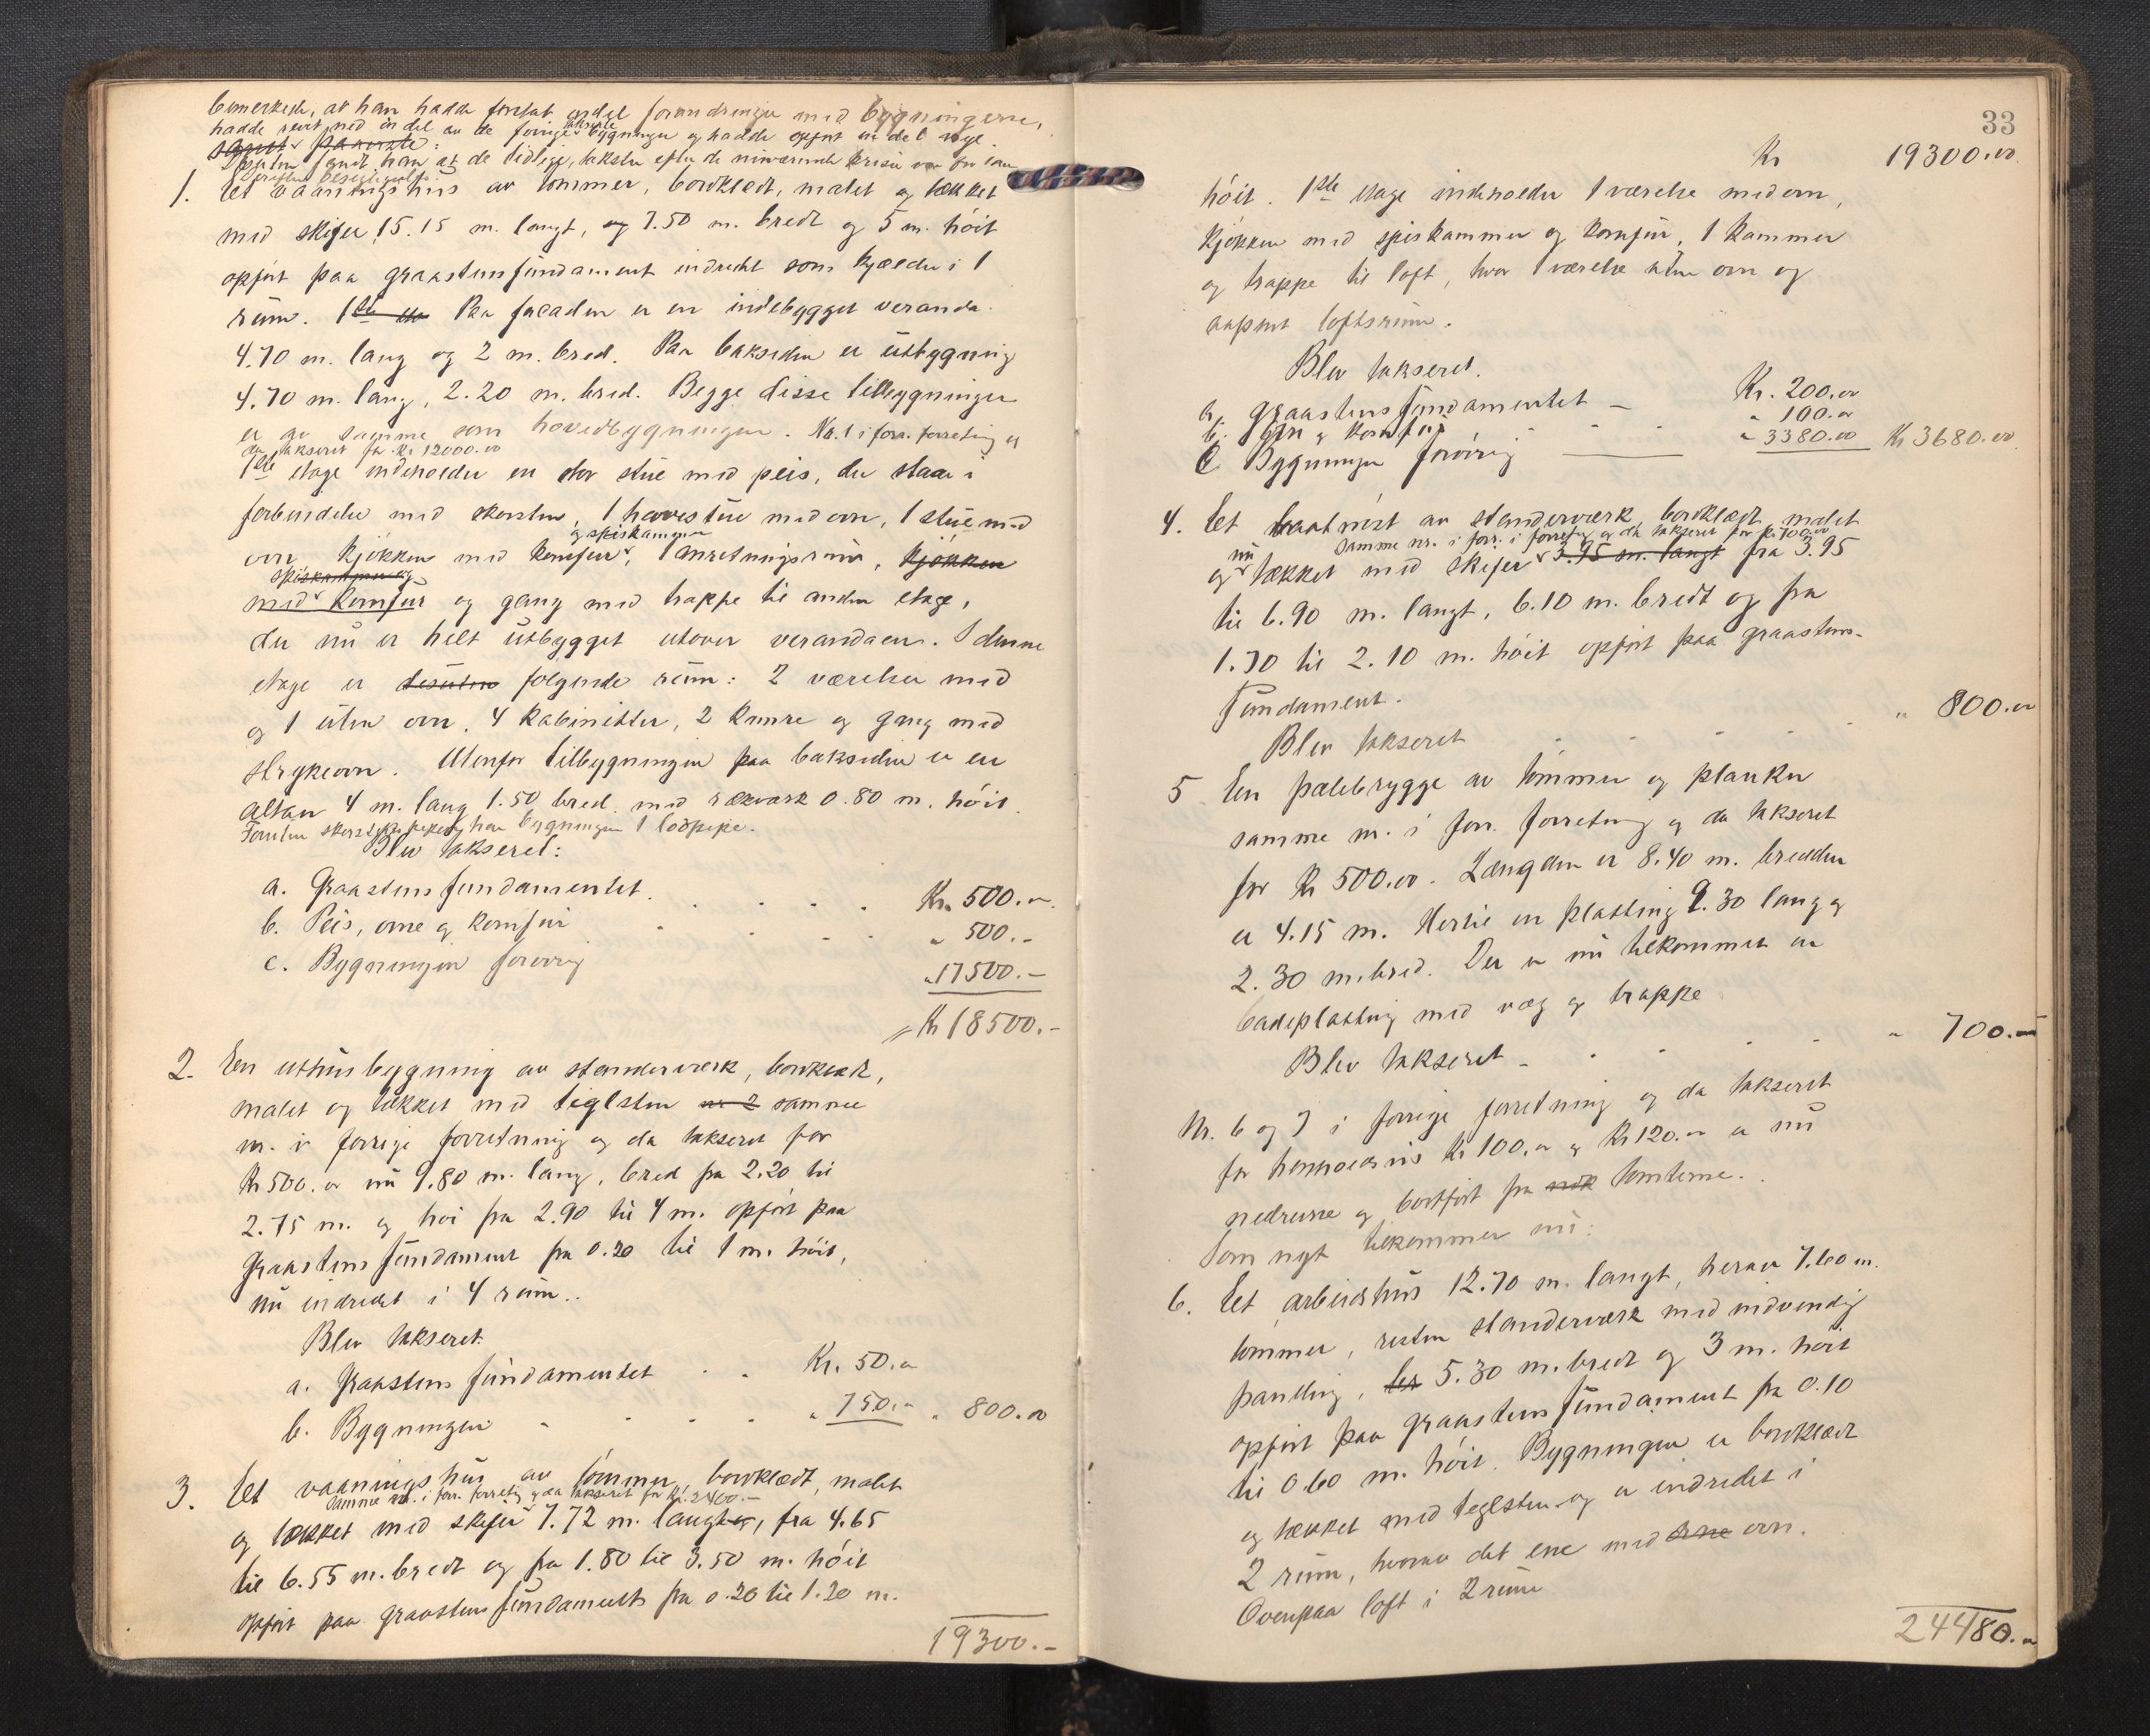 bemerkede, at han hadde foretat endel forandringer med bygningerne,
hadde revet ned en del av de forrige takserte bygninger og hadde opført en del nye.
Desuten fandt han at de tidligere takster efter de nuværende priser var for lave
1. Et vaaningshus av tømmer, bordklædt, malet og tækket
med skifer 15.15 m. langt, og 7.50 m. bredt og 5 m. høit
opført paa graastensfundament indredet som kjælder i 1
rum. 1ste Paa facaden er en indebygget veranda
4.70 m. lang og 2 m. bred. Paa baksiden er utbygning
4.70 m. lang, 2.20 m. bred. Begge disse tilbygninger
er av samme som hovedbygningen. No. 1 i forr. forretning og
da takseret for Kr 12000.00
1ste etage indeholder en stor stue med peis, der staar i
forbindelse med skorsten, 1 havestue med ovn, 1 stue med
ovn kjøkken med komfur og spiskammer, 1 anretningsrum, kjøkken
med spiskammer og komfur og gang med trappe til anden etage,
der nu er helt utbygget utover verandaen. I denne
etage er desuten følgende rum: 2 værelser med
og 1 uten ovn. 4 kabinetter, 2 kvurre og gang med
strykeovn. Utenfor tilbygningen paa baksiden er en
altan 4 m. lang 1.50 bred med rækværk 0.80 m. høit.
Foruten har bygningen 1 lodpipe.
Blev takseret:
a. Graastensfundamentet. Kr. 500.-
b. Peis, ovne og komfur " 500.-
c. Bygningen forøvrig " 17500.-
Kr 18500.-
2. En uthusbygning av standerværk, bordklædt,
malet og tækket med teglsten nr 2 samme
nr. i forrige forretning og da takseret for
Kr 500.00 nu 9.80 m. lang, bred fra 2.20 til
2.75 m. og høi fra 2.90 til 4 m. opført paa
Graastensfundament fra 0.20 til 1 m. høit,
nu indredet i 4 rum..
Blev takseret.
a. Graastensfundamentet Kr. 50.00
b. Bygningen " 750.00 " 800.00
3. Et vaaningshus av tømmer, bordklædt, malet
samme nr. i forr. forretg og da takseret for Kr. 2400.-
og tækket med skifer 7.72 m. langt og, fra 4.65
til 6.55 m. bredt og fra 1.80 til 3.50 m. høit
opført paa graastensfundaments fra 0.20 til 1.20 m.
19300.-
33
Kr 19300.00
høit. 1ste etage indeholder 1 værelse med ovn,
kjøkken med spiskammer og komfur, 1 kammer
og trappe til loft, hvor 1 værelse uten ovn og
aapent loftsrum.
Blev takseret.
a. graastensfundamentet – Kr. 200.00
b. ovn og komfur " 100.00
c Bygningen forøvrig " 3380.00 Kr 3680.00
4. Et baatnøst av standerværk bordklædt, malet
samme nr. i forr. i forretng og da takseret for Kr. 700.00
og nu tækket med skifer 3.95 m. langt fra 3.95
til 6.90 m. langt, 6.10 m. bredt og fra
1.70 til 2.10 m. høit opført paa graastens-
fundament.
Blev takseret " 800.00
5 En pælebrygge av tømmer og planker
samme nr. i forr. forretning og da takseret
for Kr 500.00. Længden er 8.40 m. bredden
er 4.15 m. Hertil en platting 9.30 lang og
2.30 m. bred. Der er nu tilkommet en
badeplatting med væg og trappe
Blev takseret – " 700.–
Nr. 6 og 7 i forrige forretning og da takseret
for henholdsvis Kr 100.00 og Kr 120.00 er nu
nedrevne og bortført fra tomterne.
Som nyt tilkommer nu:
6. Et arbeidshus 12.70 m. langt, herav 7.60 m.
tømmer, resten standerværk med indvendig
panling, br 5.30 m. bredt og 3 m. høit
opført paa graastensfundament fra 0.10
til 0.60 m. høit. Bygningen er bordklædt
og tækket med teglsten og er indredet i
2 rum, hvorav det ene med ovne ovn.
Ovenpaa loft i 2 rum
24480.00